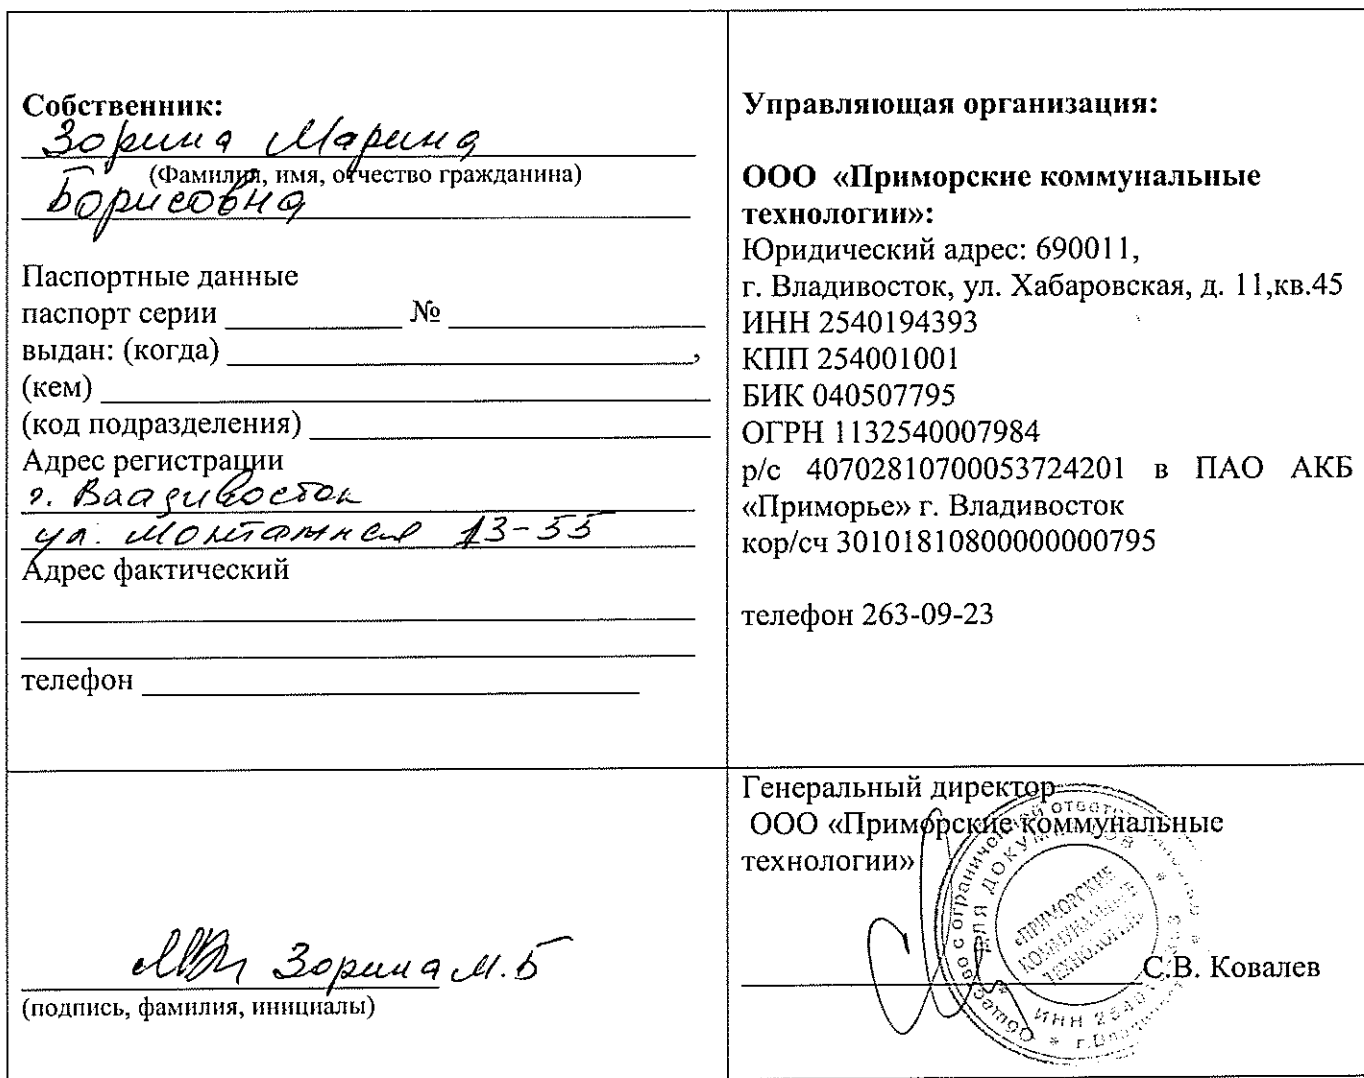 Собственник:
Зорина Марина
(Фамилия, имя, отчество гражданина)
Борисовна
Паспортные данные
паспорт серии ____________ № ____________
выдан: (когда) ____________,
(кем) ____________
(код подразделения) ____________
Адрес регистрации
г. Владивосток
ул. Монтажная 13-55
Адрес фактический
телефон ____________
Управляющая организация:
ООО «Приморские коммунальные
технологии»:
Юридический адрес: 690011,
г. Владивосток, ул. Хабаровская, д. 11,кв.45
ИНН 2540194393
КПП 254001001
БИК 040507795
ОГРН 1132540007984
р/с 40702810700053724201 в ПАО АКБ
«Приморье» г. Владивосток
кор/сч 30101810800000000795
телефон 263-09-23
Зорина М.Б
(подпись, фамилия, инициалы)
Генеральный директор
ООО «Приморские коммунальные
технологии»
С.В. Ковалев
Общество с ограниченной
ДЛЯ ДОКУМЕНТОВ
«ПРИМОРСКИЕ
КОММУНАЛЬНЫЕ
ТЕХНОЛОГИИ»
ИНН